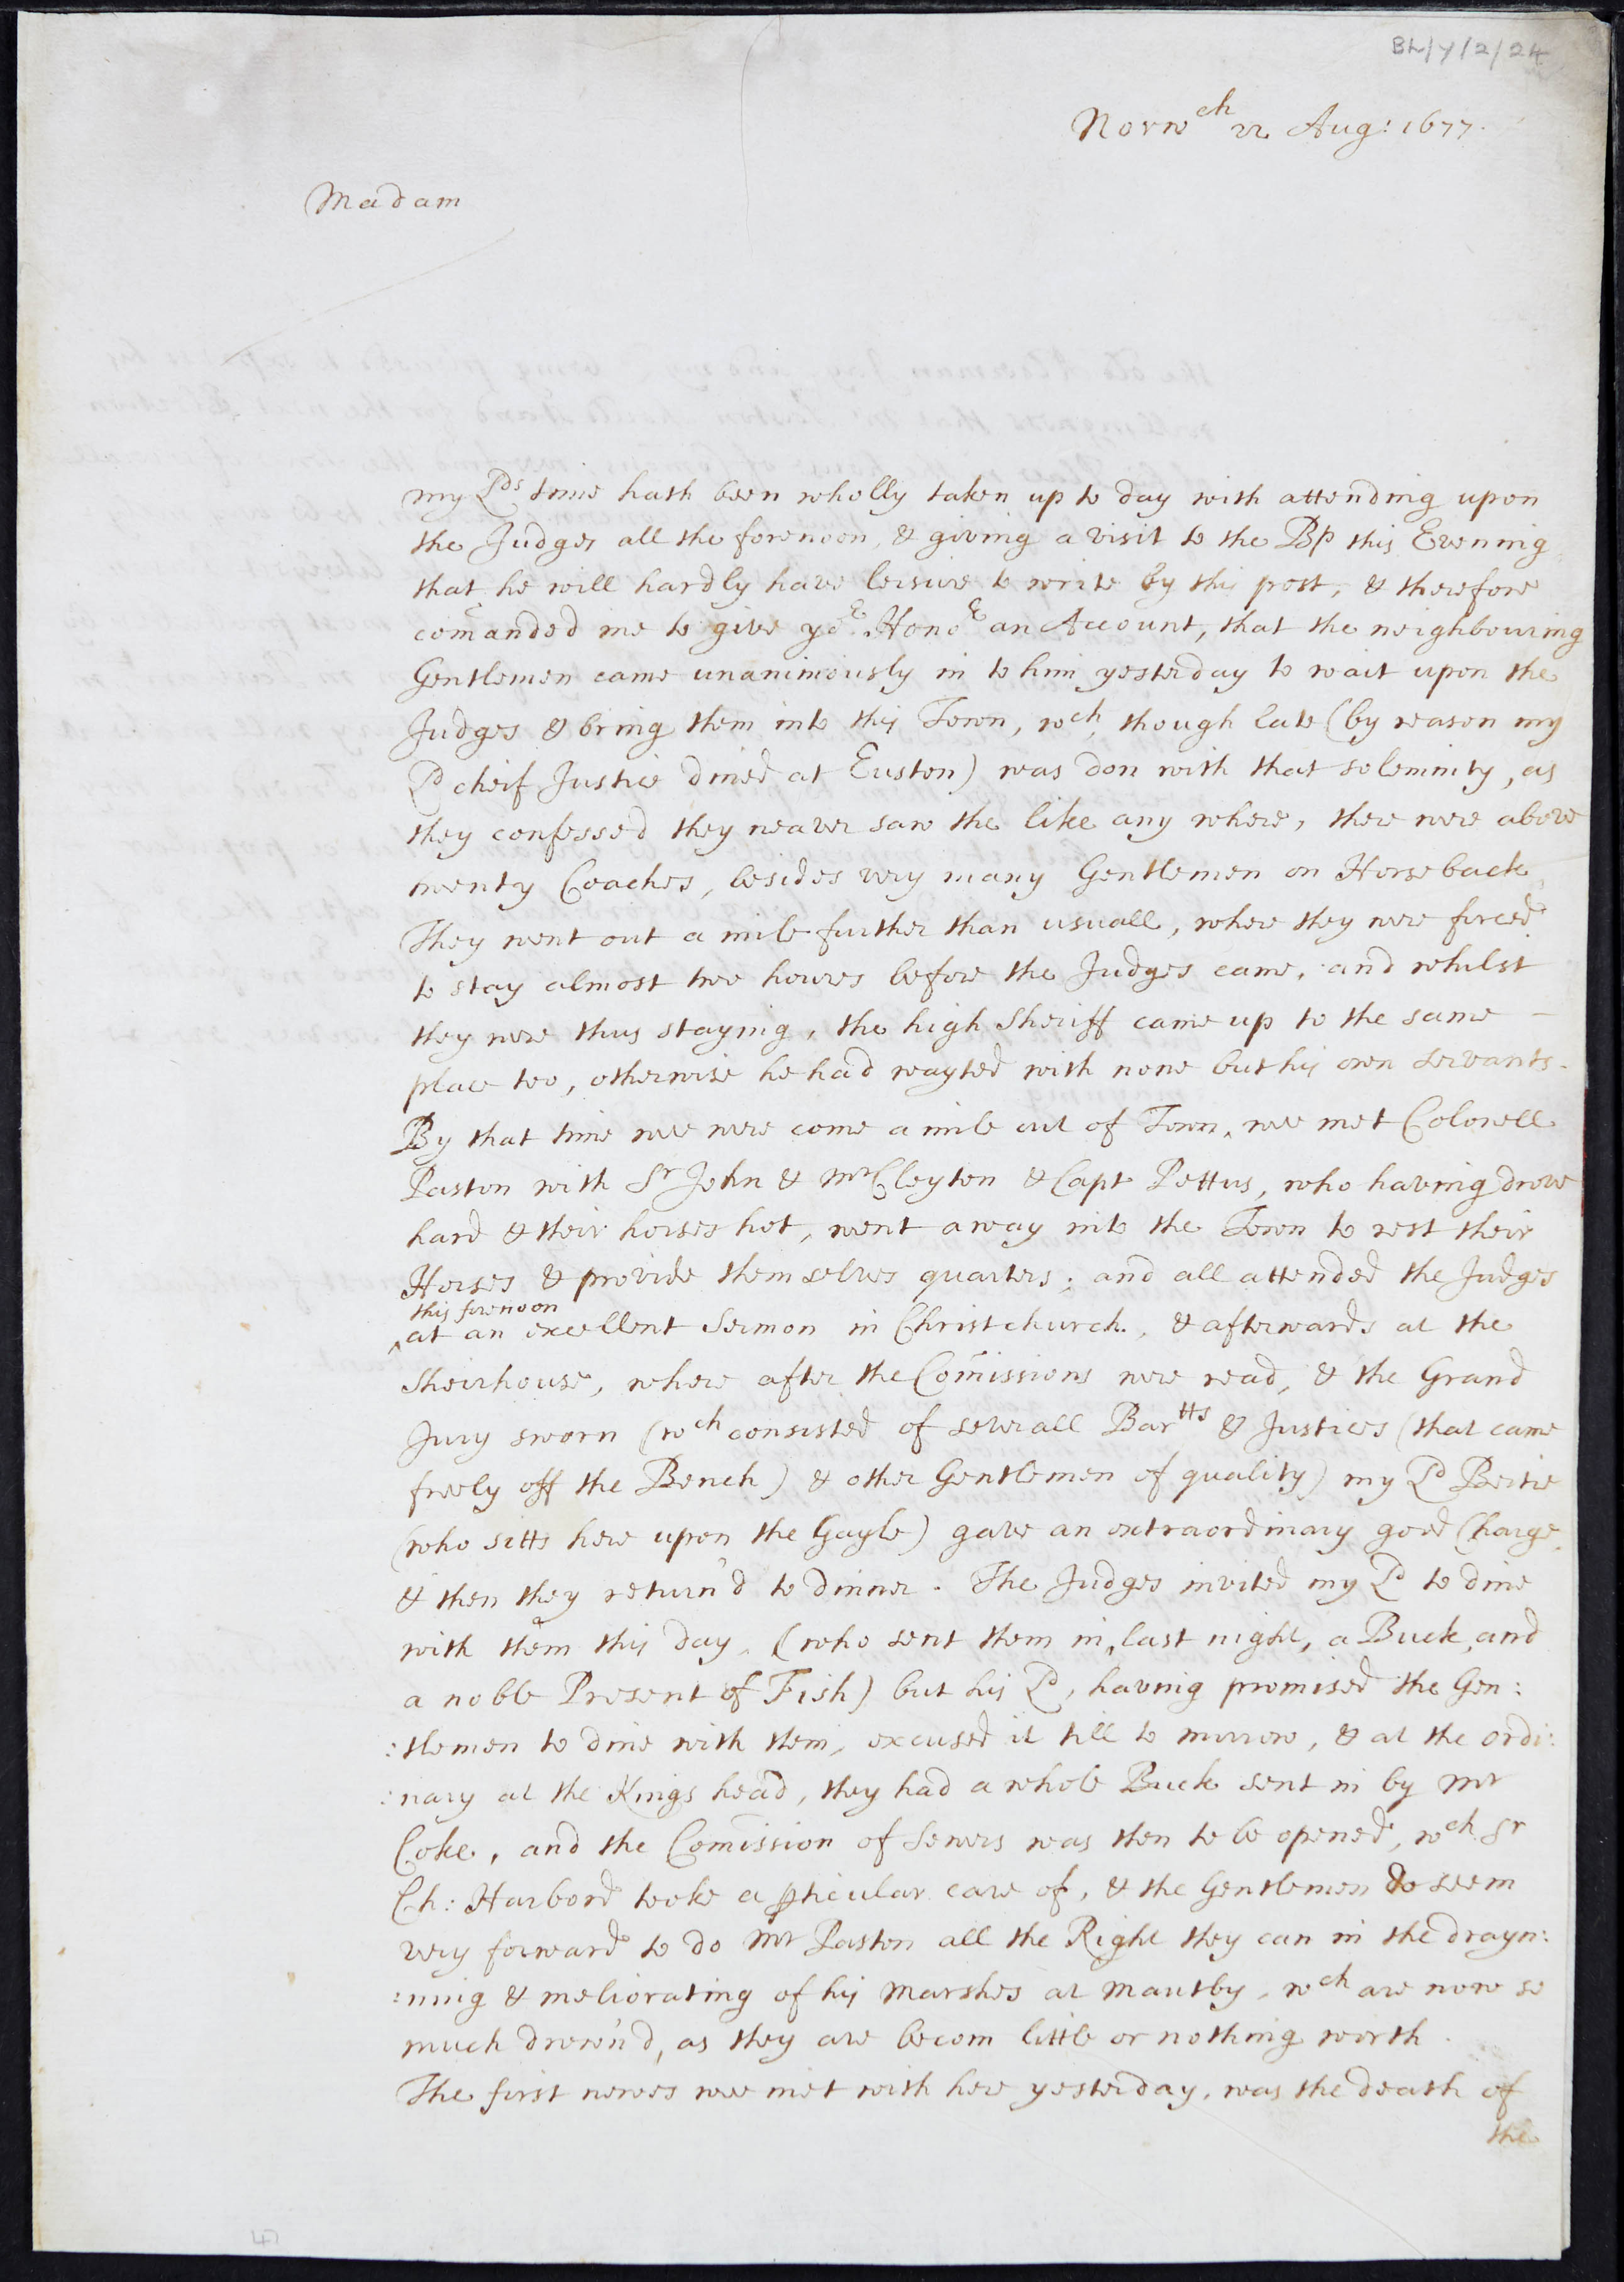 BL/Y/2/24
Norwch 22 Aug: 1677.
Madam
my Lds time hath been wholly taken up to day with attending upon
the Judges all the forenoon, & giving a visit to the Bp this Evening,
that he will hardly have leisure to write by this post, & therefore
comanded me to give yor Honor an Account, that the neighbouring
Gentlemen came unanimously in to him yesterday to wait upon the
Judges & bring them into this Town, wch, though late (by reason my
Ld cheif Justice dined at Euston) was don with that solemnity, as
they confessed they neaver saw the like any where, there were above
twenty Coaches, besides very many Gentlemen on Horseback
They went out a mile further than usuall, where they were forced
to stay almost two houres before the Judges came, and whilst
they were thus staying, the high Sheriff came up to the same –
place too, otherwise he had wayted with none but his own servants.
By that time wee were come a mile out of Town, wee met Colonell
Paston with Sr John & Mr Cleyton & Capt Pettus, who having drove
hard & their horses hot, went away into the Town to rest their
Horses & provide themselves quarters; and all attended the Judges
this forenoon
^at an excellent Sermon in Christchurch, & afterwards at the
Sheirhouse, where after the Comissions were read, & the Grand
Jury sworn (wch consisted of severall Bartts & Justices (that came
freely off the Bench) & other Gentlemen of quality) my Ld Bertie
(who sitts here upon the Gayle) gave an extraordinary good Charge,
& then they return'd to dinner. The Judges invited my Ld to dine
with them this day, (who sent them in, last night, a Buck, and
a noble Present of Fish) but his Ld, having promised the Gen:
:tlemen to dine with them, excused it till to morrow, & at the ordi:
:nary at the Kings head, they had a whole Buck sent in by Mr
Coke, and the Comission of Sewers was then to be opened, wch Sr
Ch: Harbord tooke a pticular care of, & the Gentlemen do seem
very forward to do Mr Paston all the Right they can in the drayn:
:ning & meliorating of his Marshes at Mautby, wch are now so
much drown'd, as they are becom little or nothing worth.
The first newes wee met with here yesterday, was the death of
the